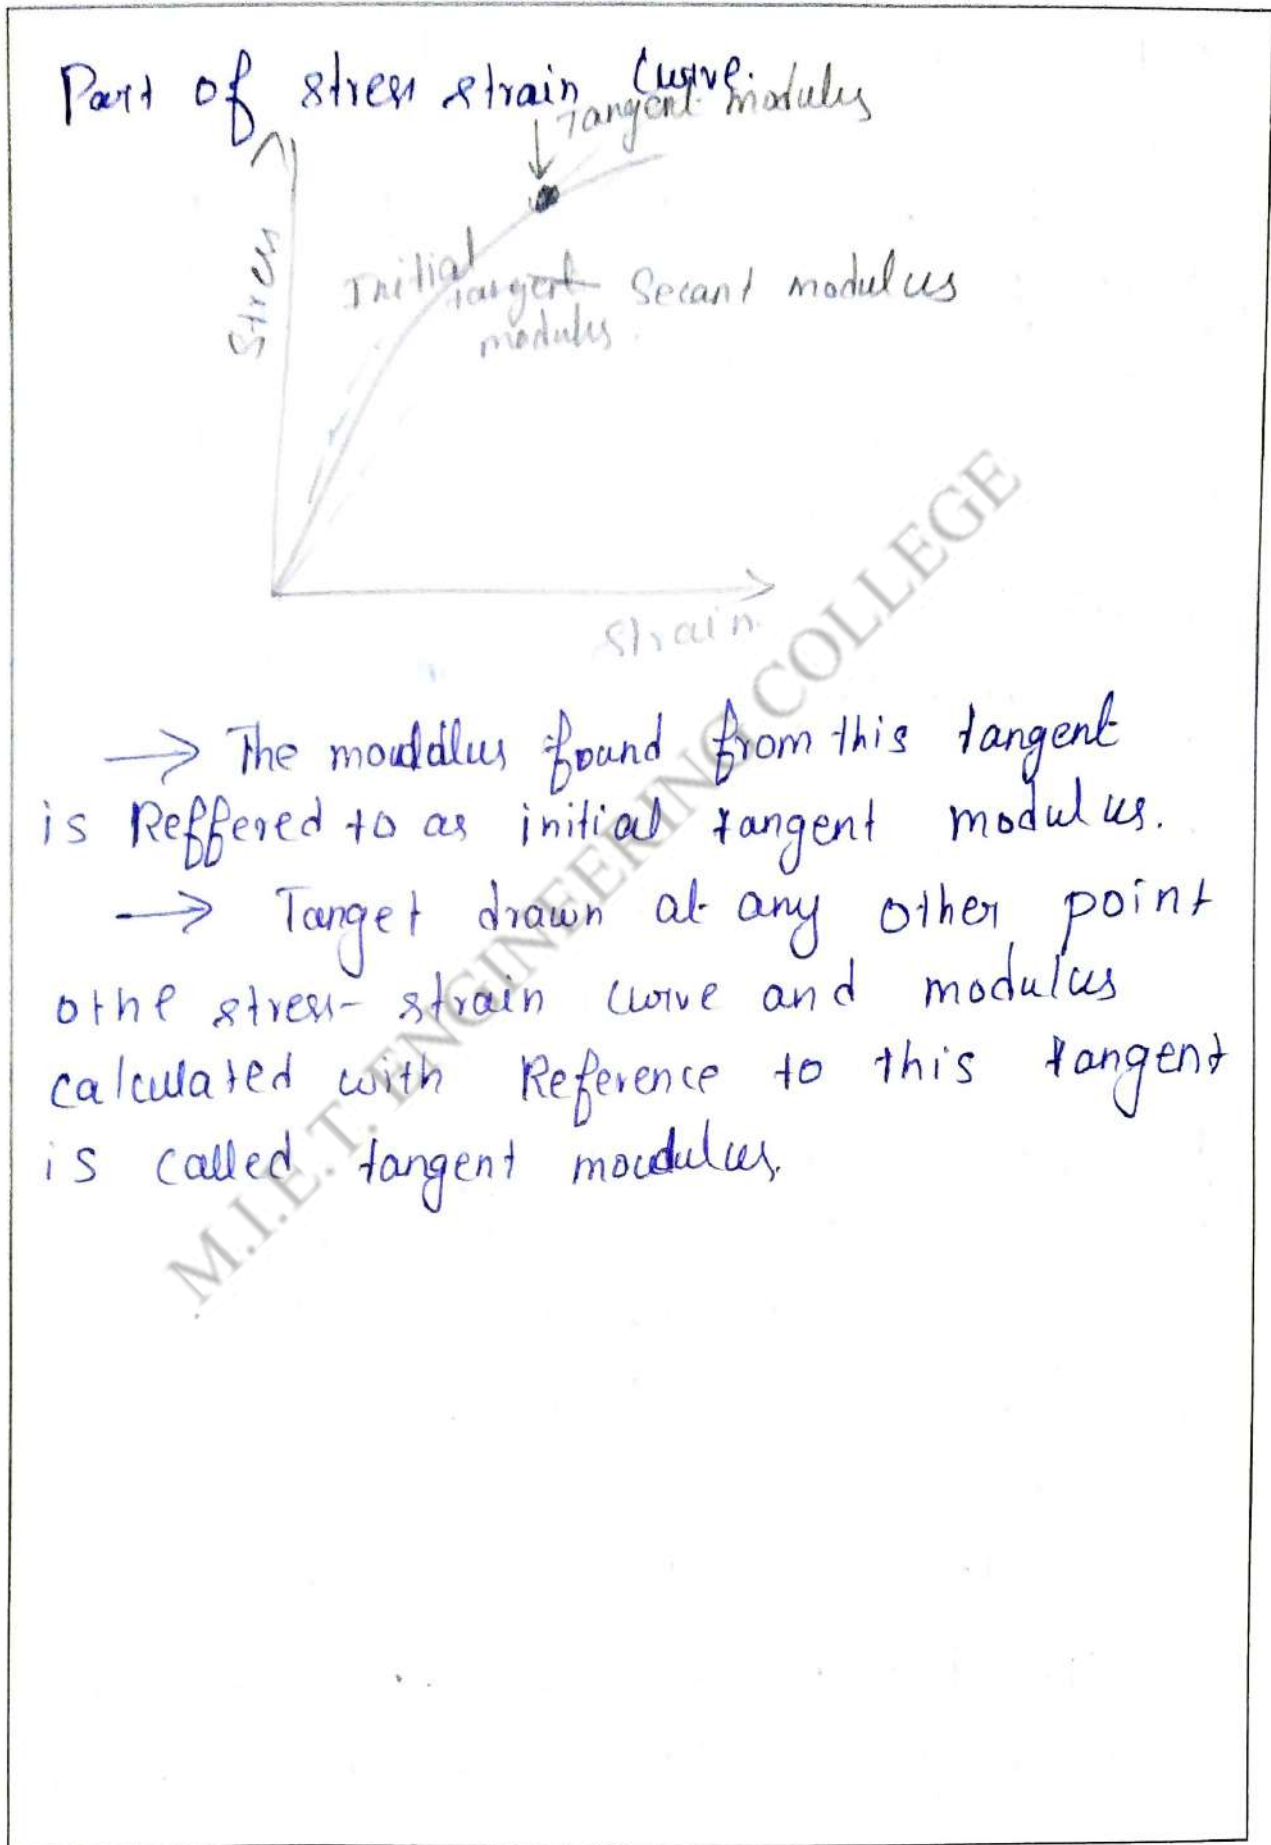 Part of stress strain Curve.
Tangent modulus
Stress
Initial
tangent Secant modulus
modulus.
Strain.
→ The mouddlus found from this tangent
is Reffered to as initial tangent modulus.
→ Tanget drawn at any other point
othe stress- strain curve and modulus
calculated with Reference to this tangent
is called tangent moudulus.
M.I.E.T. ENGINEERING COLLEGE